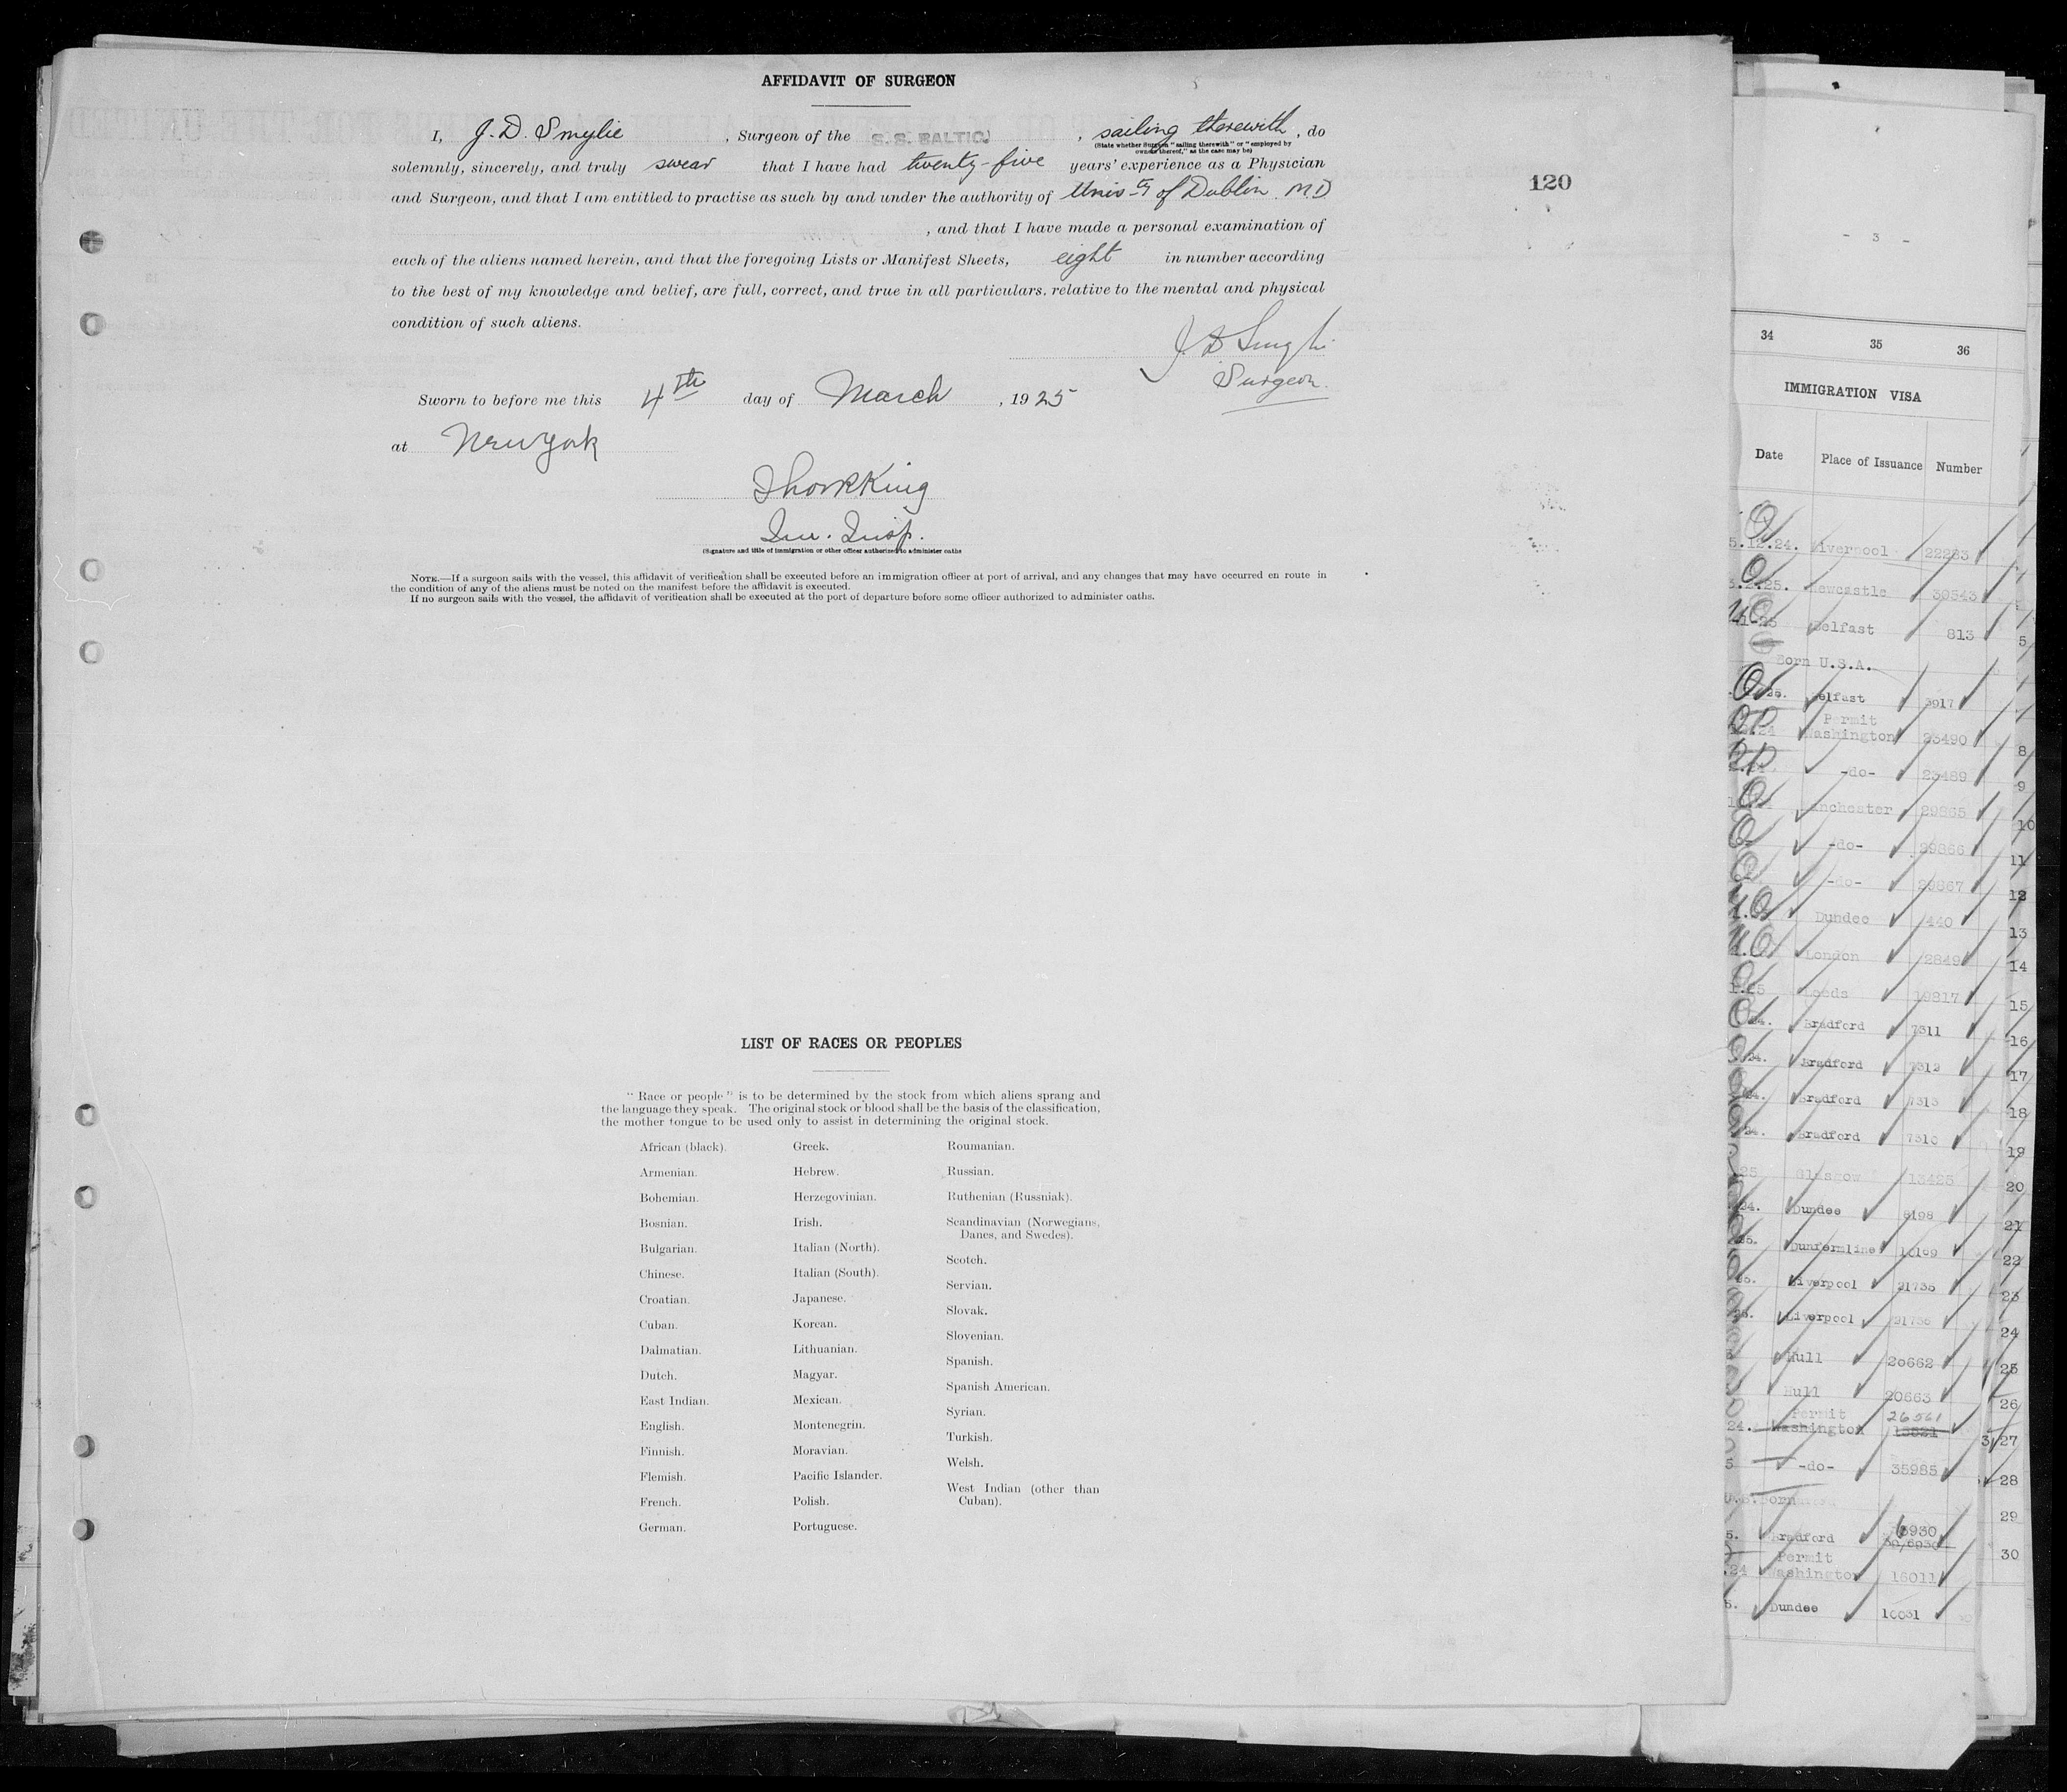 AFFIDAVIT OF SURGEON
I, J. D. Smylie, Surgeon of the S. S. BALTIC, sailing therewith, do
(State whether Surgeon "sailing therewith" or "employed by
owners thereof," as the case may be)
solemnly, sincerely, and truly swear that I have had twenty-five years' experience as a Physician
and Surgeon, and that I am entitled to practise as such by and under the authority of Univ-ty of Dublin. M.D
, and that I have made a personal examination of
each of the aliens named herein, and that the foregoing Lists or Manifest Sheets, eight in number according
to the best of my knowledge and belief, are full, correct, and true in all particulars, relative to the mental and physical
condition of such aliens.
Surgeon.
Sworn to before me this 4th day of March, 1925
at New York
King
Insp.
(Signature and title of immigration or other officer authorized to administer oaths
NOTE.—If a surgeon sails with the vessel, this affidavit of verification shall be executed before an immigration officer at port of arrival, and any changes that may have occurred en route in
the condition of any of the aliens must be noted on the manifest before the affidavit is executed.
If no surgeon sails with the vessel, the affidavit of verification shall be executed at the port of departure before some officer authorized to administer oaths.
120
LIST OF RACES OR PEOPLES
"Race or people" is to be determined by the stock from which aliens sprang and
the language they speak. The original stock or blood shall be the basis of the classification,
the mother tongue to be used only to assist in determining the original stock.
African (black).
Armenian.
Bohemian.
Bosnian.
Bulgarian.
Chinese.
Croatian.
Cuban.
Dalmatian.
Dutch.
East Indian.
English.
Finnish.
Flemish.
French.
German.
Greek.
Hebrew.
Herzegovinian.
Irish.
Italian (North).
Italian (South).
Japanese.
Korean.
Lithuanian.
Magyar.
Mexican.
Montenegrin.
Moravian.
Pacific Islander.
Polish.
Portuguese.
Roumanian.
Russian.
Ruthenian (Russniak).
Scandinavian (Norwegians,
Danes, and Swedes).
Scotch.
Servian.
Slovak.
Slovenian.
Spanish.
Spanish American.
Syrian.
Turkish.
Welsh.
West Indian (other than
Cuban).
- 3 -
34 35 36
IMMIGRATION VISA
Date Place of Issuance Number
5.12.24. Liverpool 22283
Newcastle 30543
Belfast 813 5
Born U.S.A.
Belfast 3917
Permit
Washington 23490 8
-do- 23489 9
anchester 29865 10
-do- 29866 11
-do- 29867 12
Dundee 440 13
London 2849 14
Leeds 19817 15
Bradford 7311 16
Bradford 7312 17
Bradford 7313 18
Bradford 7310 19
Glasgow 13425 20
Dundee 8198 21
Dunfermline 10109 22
Liverpool 21735 23
Liverpool 21736 24
Hull 20662 25
Hull 20663 26
Permit 26561
24. Washington 27
-do- 35985 28
29
Bradford 6930 30
Permit
24 Washington 16011
Dundee 10031